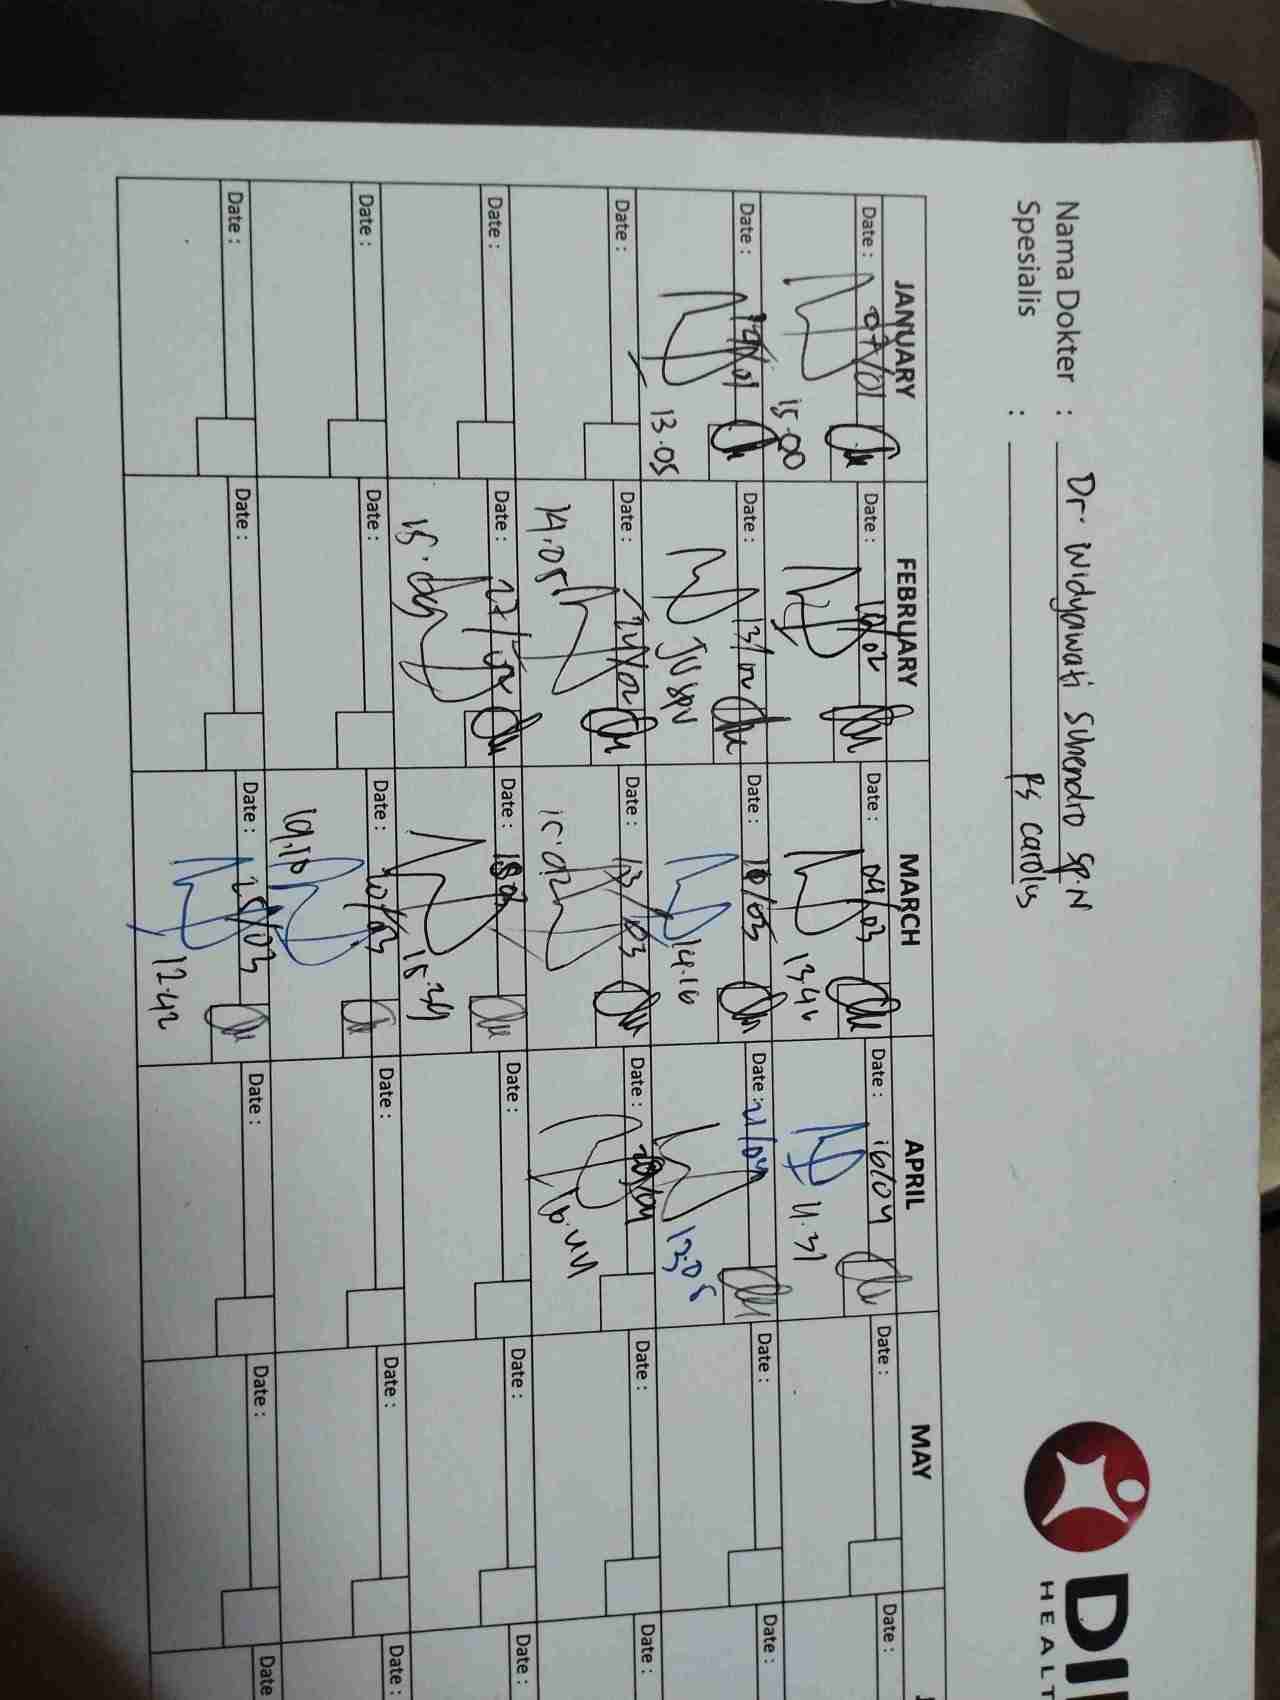 Nama Dokter : Dr. Widyawati Suhendro SpN
Spesialis : RS Carolus
DI
HEALT
JANUARY FEBRUARY MARCH APRIL MAY J
Date : 07/01 Date : 10/02 Date : 04/03 Date : 16/04 Date : Date :
15.00 11.37
Date : Date : 13/02 Date : 10/03 Date : 21/04 Date : Date :
13.05 14.16 13.05
Date : Date : 24/02 Date : 13/03 Date : 28/04 Date : Date :
14.05
Date : Date : 27/02 Date : 18 Date : Date : Date :
15.39
Date : Date : Date : 20/03 Date : Date : Date :
19.10
Date : Date : Date : 25/03 Date : Date : Date
12.42